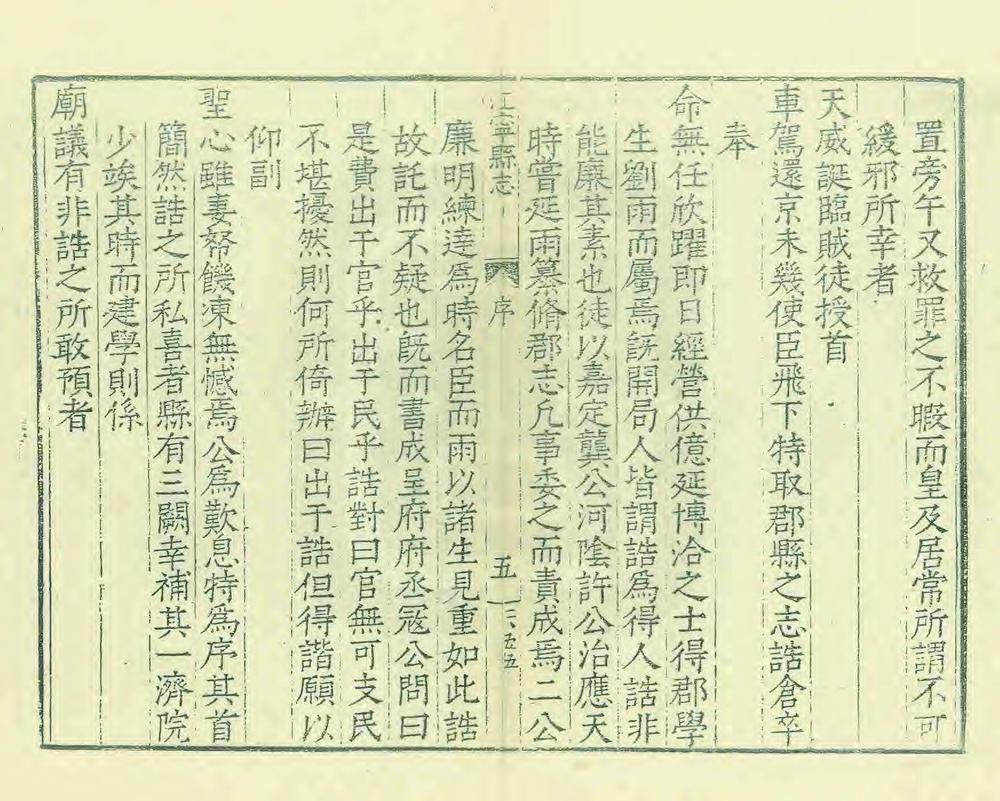 置旁午又救罪之不暇而皇及居常所謂不可
緩邪所幸者
天威誕臨賊徒授首
車駕還京未幾使臣飛下特取郡縣之志誥倉卒
奉
命無任欣躍即日經營供億延博洽之士得郡學
生劉雨而屬焉旣開局人皆謂誥爲得人誥非
能廉其素也徒以嘉定龔公河陰許公治應天
時嘗延雨纂脩郡志凡事委之而責成焉二公
江寧縣志
序
五
廉明練達爲時名臣而雨以諸生見重如此誥
故託而不疑也旣而書成呈府府丞冦公問曰
是費出于官乎出于民乎誥對曰官無可支民
不堪擾然則何所倚辦曰出于誥但得諧願以
仰副
聖心雖妻帑饑凍無憾焉公爲歎息特爲序其首
簡然誥之所私喜者縣有三闕幸補其一濟院
少竢其時而建學則係
廟議有非誥之所敢預者